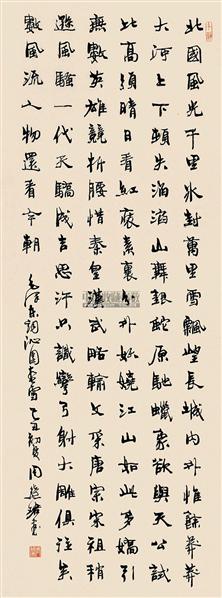 北國風光千里冰封萬里雪飄望長城內外惟餘莽莽
大河上下頓失滔滔山舞銀蛇原馳蠟象欲與天公試
比高須晴日看紅裝素裹分外妖嬈江山如此多嬌引
無數英雄競折腰惜秦皇漢武略輸文采唐宗宋祖稍
遜風騷一代天驕成吉思汗只識彎弓射大雕俱往矣
數風流人物還看今朝 毛澤東詞沁園春雪 丑初夏周慧珺書